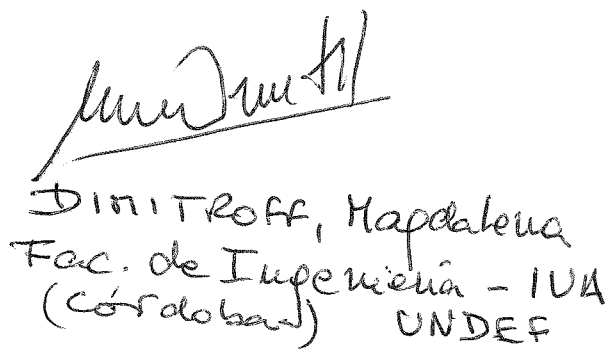 DIMITROFF, Magdalena
Fac. de Ingeniería - IUA
(Córdoba) UNDEF